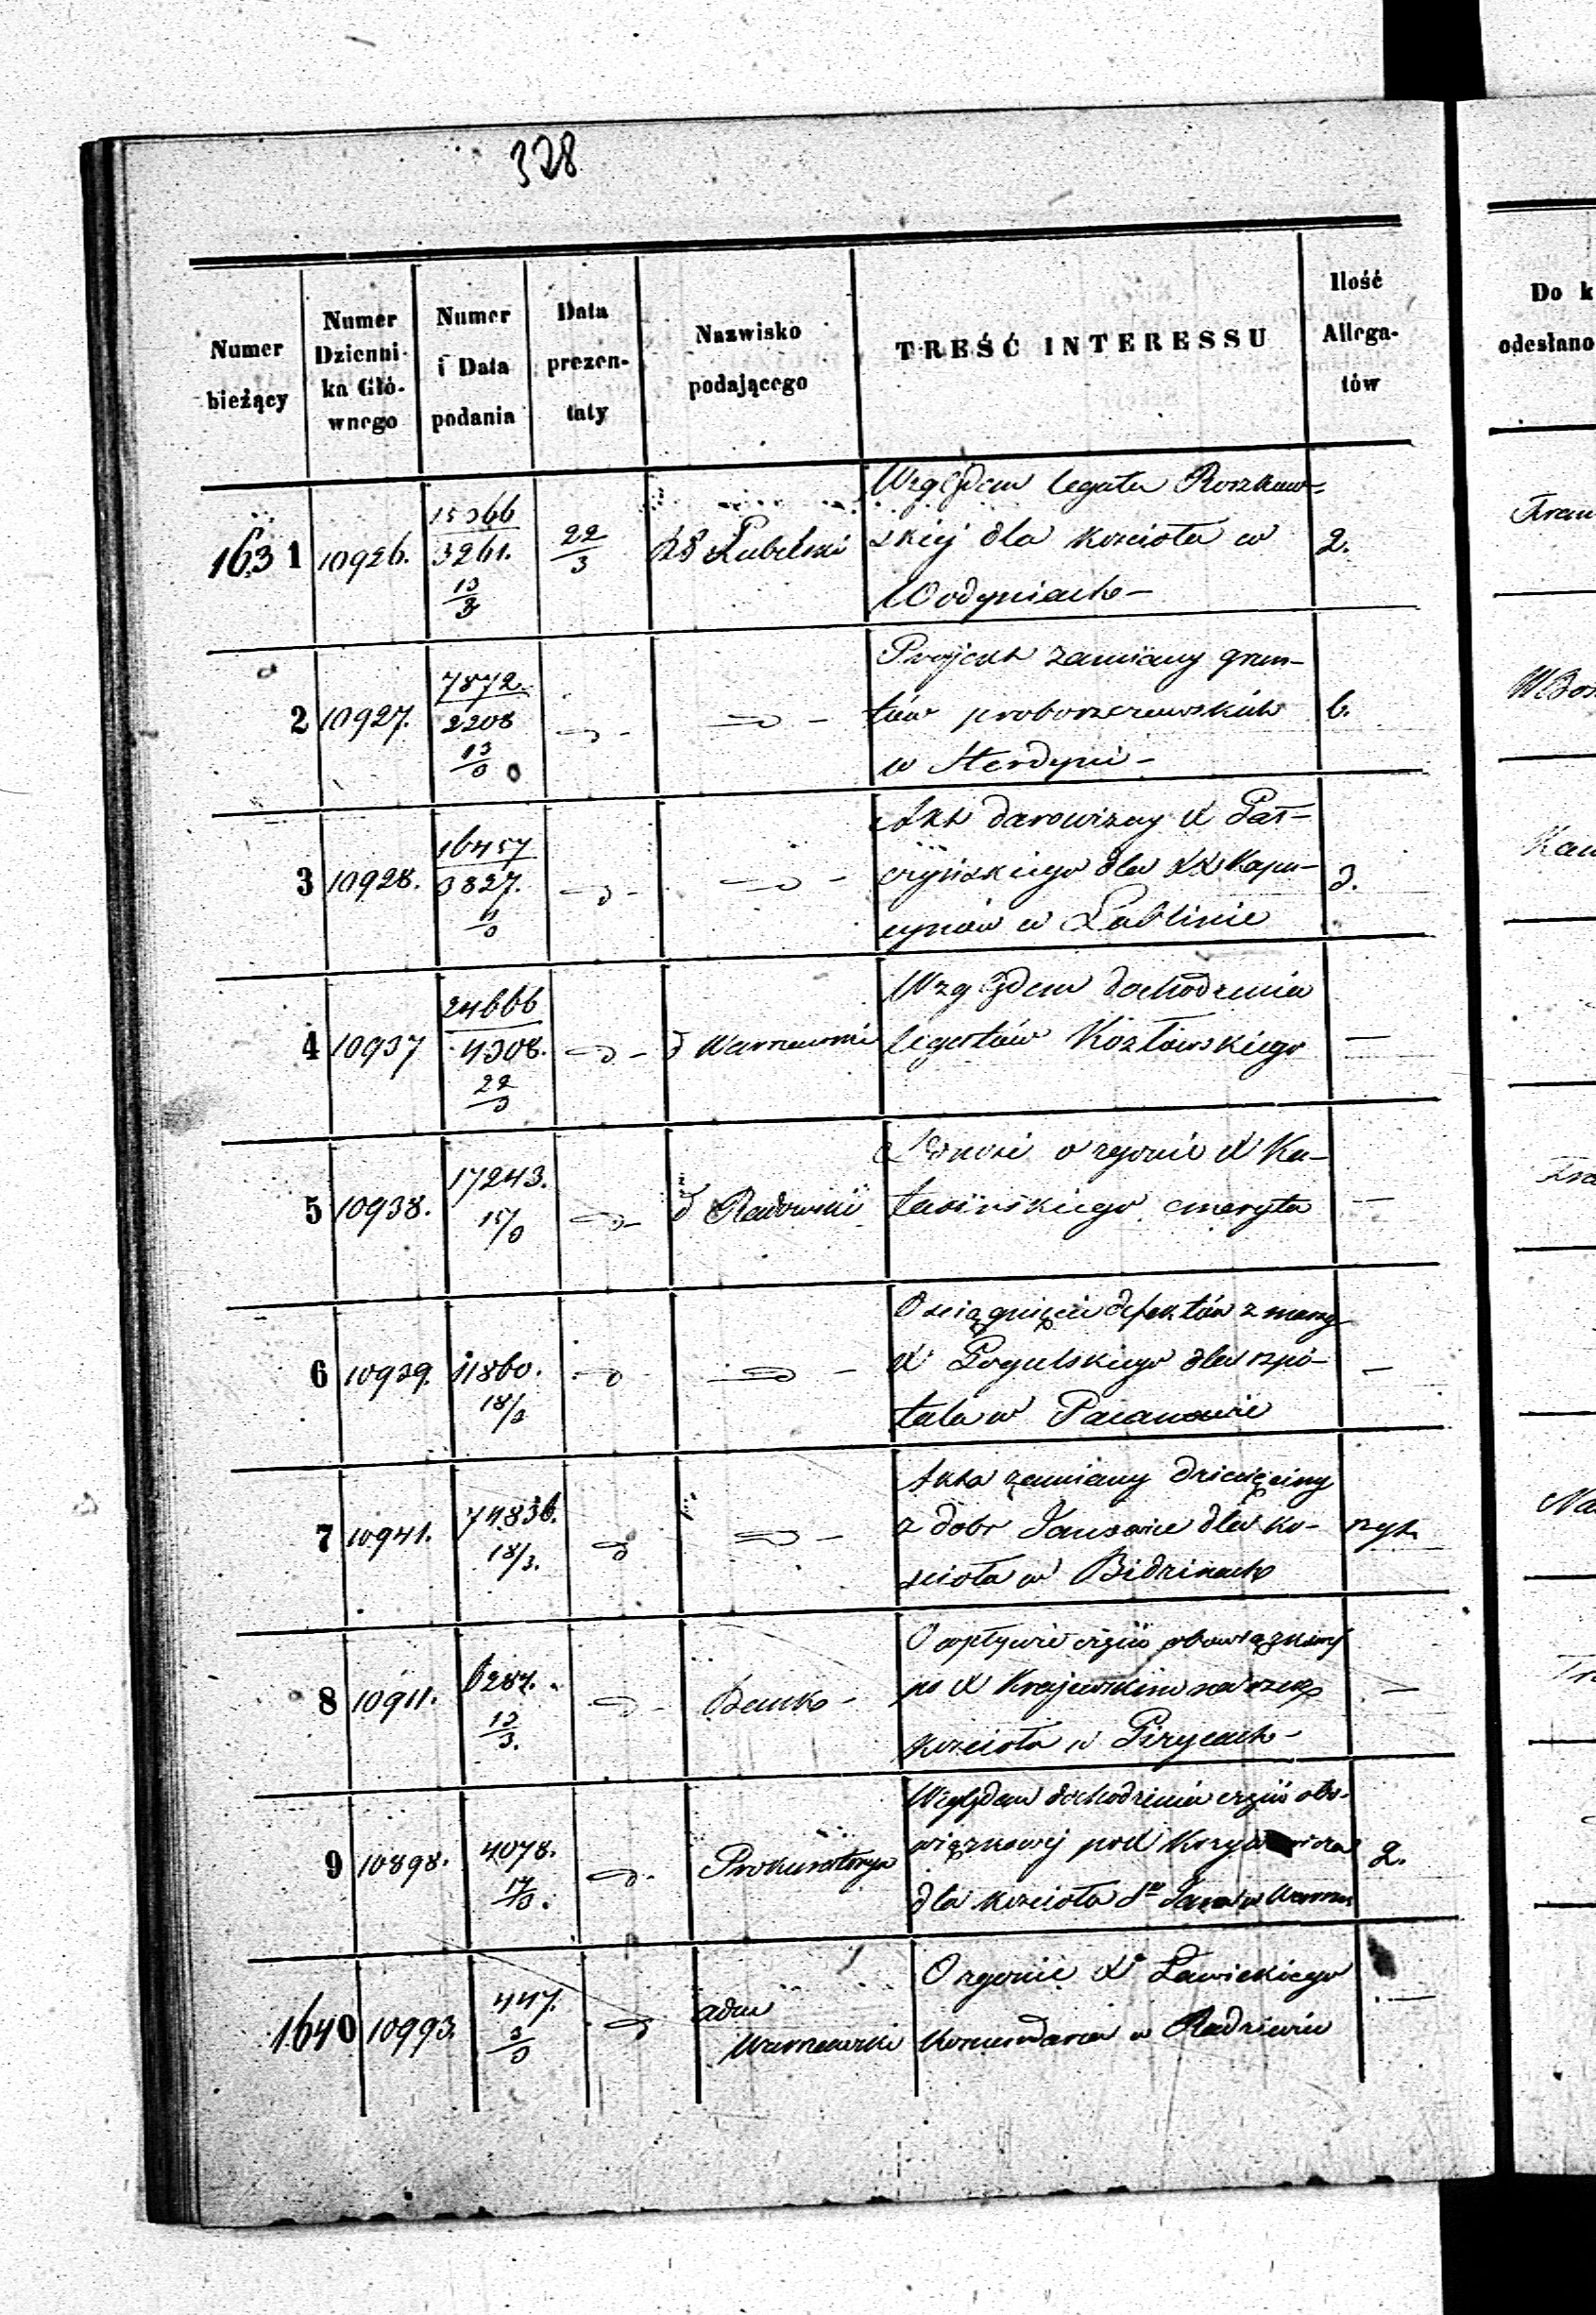 328
Numer bieżący
Numer Dzienni- ka Głó- wnego
Numer i Data podania
Data prezen- taty
Nazwisko podającego
TREŚĆ INTERESSU
Ilość Allega- tów
Do k
odesłano
1631 10926. 15366 3261. 13/3 22/3 Lubelski
Względem legatu Roszkow-
skiej dla kościoła w
Wodyniach –
2.
2 10927. 7872. 2208 13/3
Projekt zamiany grun-
tów proboszczewskich
w Sterdyni –
6.
3 10928. 16457 3827. 11/3
Akt darowizny X
czyńskiego dla XX Kapu-
cynów w Lublinie
3.
4 10937 24666 4308. 22/3 Warszawski
Względem dochodzenia
legatów Kozłowskiego
—
5 10938. 17243. 15/3 Radomski
Donosi o zgonie X Ka-
tasińskiego emeryta
—
6 10939. 11860. 18/3
O ściągnięcie defektów z massy
X Pogulskiego dla szpi-
tala w Pacanowie
—
7 10941. 74836. 18/3.
Akta zamiany dziesięciny
z dobr Janowice dla ko-
ścioła w Bidzinach
szyt.
8 10911. 6287. 13/3. Bank –
O wpływie części obowiązkowej
po X Krajewskim na rzecz
kościoła w Piszycach –
—
9 10898. 4078. 17/3. Prokuratorya
Względem dochodzenia części obo-
wiązkowej po X
dla kościoła Sgo Jana w Warsza
2.
1640 10993. 447. 3/3 adm Warszawski
O zgonie X Ławickiego
Komendarza w Radziwiu
—